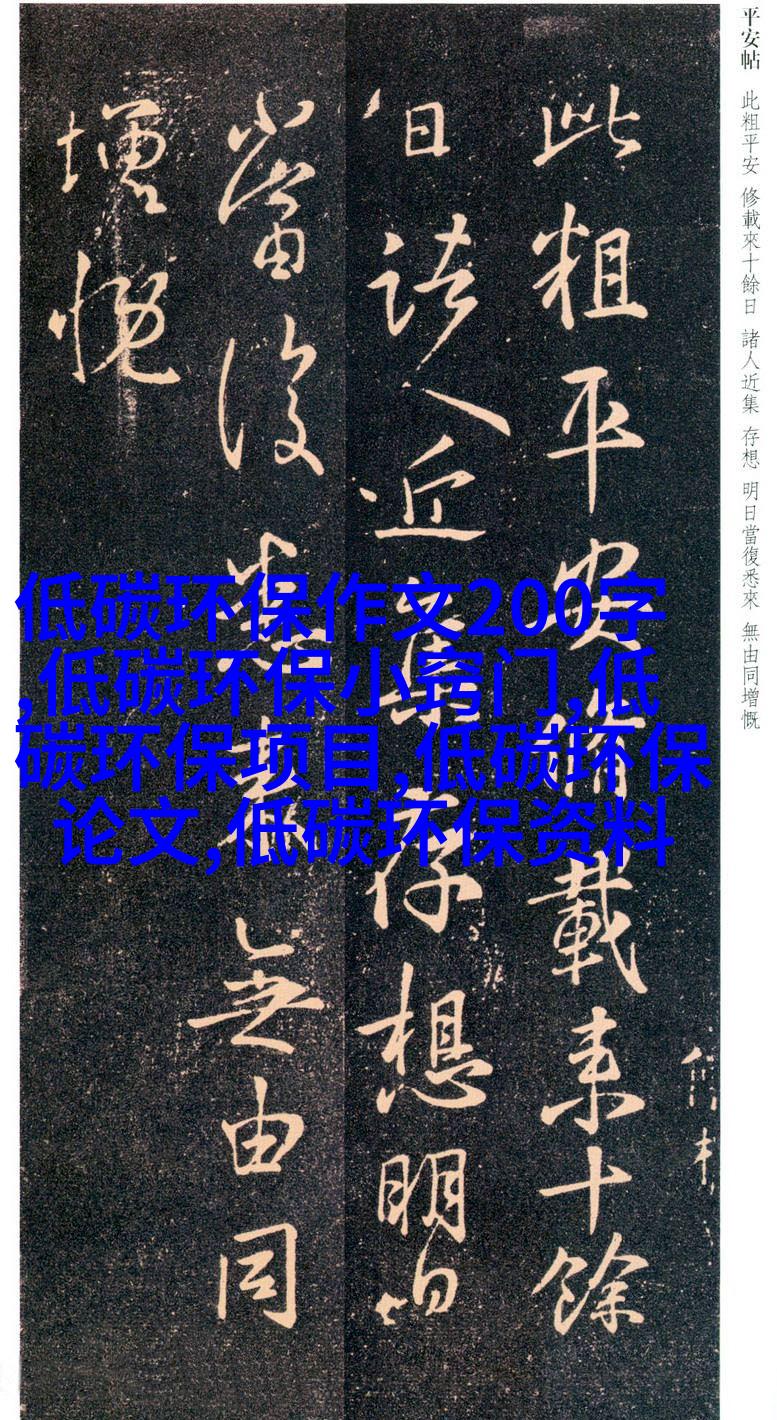 平安帖 此粗平安 修載來十餘日 諸人近集 存想 明日當復悉來 無由同增慨
此粗平安脩載来十餘
日諸人近集存想明日
當復悉来無由同
增慨
低碳环保作文200字
,低碳环保小窍门,低
碳环保项目,低碳环保
论文,低碳环保资料